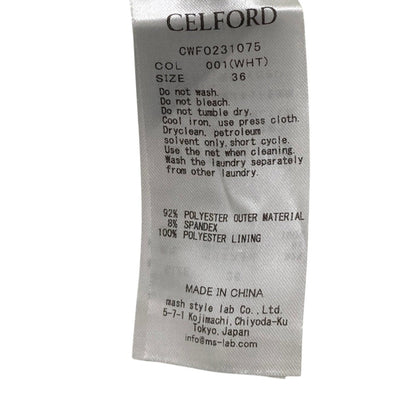 CELFORD
CWFO231075
COL 001(WHT)
SIZE 36
Do not wash.
Do not bleach.
Do not tumble dry.
Cool iron, use press cloth.
Dryclean, petroleum
solvent only, short cycle.
Use the net when cleaning.
Wash the laundry separately
from other laundry.
92% POLYESTER OUTER MATERIAL
8% SPANDEX
100% POLYESTER LINING
MADE IN CHINA
mash style lab Co., Ltd.
5-7-1 Kojimachi, Chiyoda-Ku
Tokyo, Japan
info@ms-lab.com